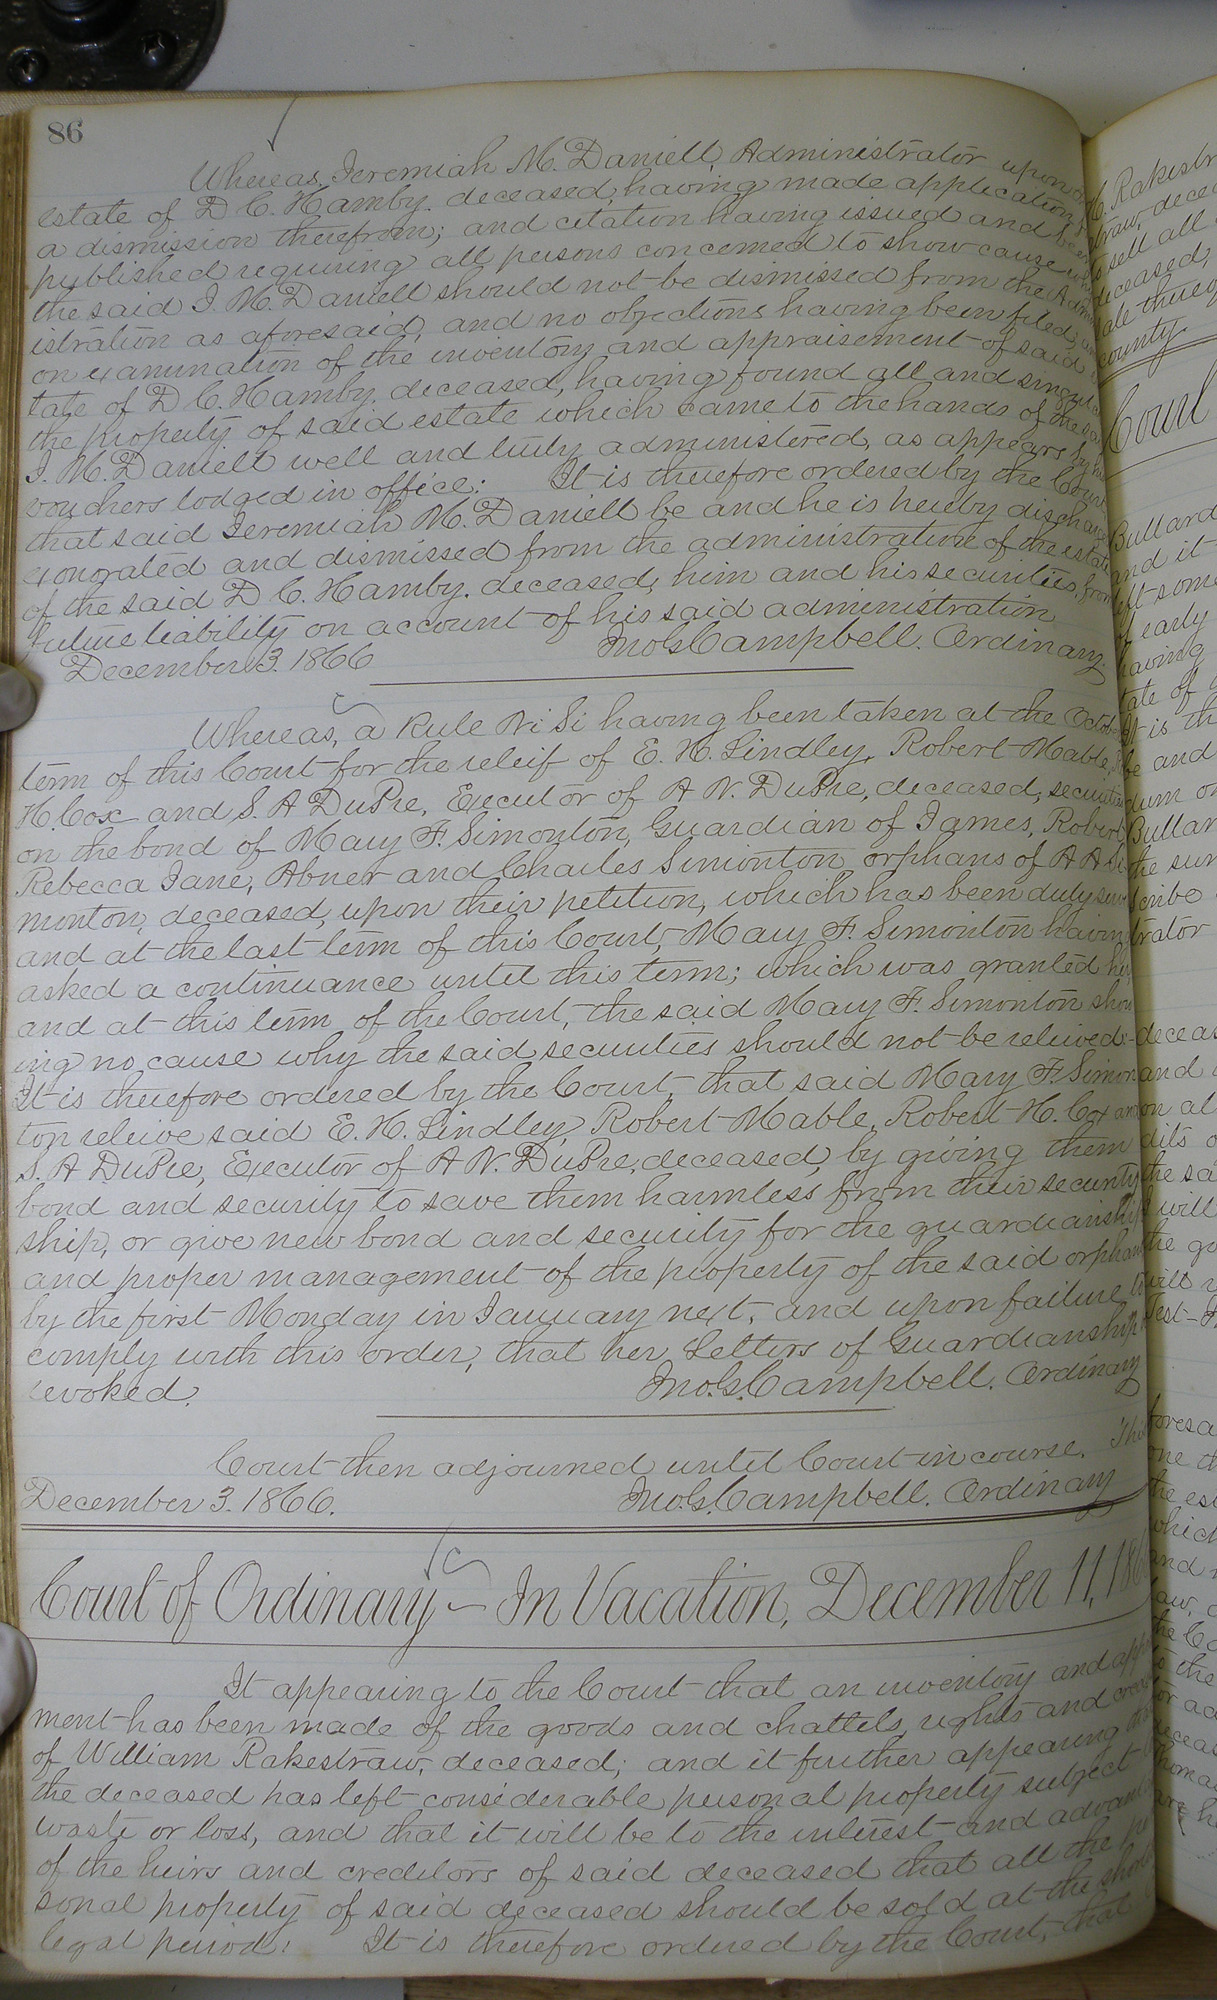 86
Whereas, Jeremiah M. Daniell, Administrator upon
estate of D C. Hamby. deceased, having made application
a dismission therefrom; and citation having issued and been
published requiring all persons concerned to show cause why
the said J. M. Daniell should not be dismissed from the Admin
istration as aforesaid, and no objections having been filed, and
on examination of the inventory and appraisement of said
tate of D C. Hamby, deceased, having found all and singular
the property of said estate which came to the hands of the said
J. M. Daniell well and truly administered, as appears by his
vouchers lodged in office: It is therefore ordered by the Court
that said Jeremiah M. Daniell be and he is hereby discharged
exonorated and dismissed from the administration of the estate
of the said D C. Hamby. deceased, him and his securities, from
future liability on account of his said administration
December 3. 1866 Jno. G. Campbell. Ordinary.
Whereas, a Rule Ni Si having been taken at the October
term of this Court for the releif of E. H. Lindley, Robert Mable, R
H. Cox and S. A DuPre, Executor of A N. DuPre, deceased, securities
on the bond of Mary F. Simonton, Guardian of James, Robert,
Rebecca Jane, Abner and Charles Simonton, orphans of A A Si
monton, deceased, upon their petition, which has been duly served
and at the last term of this Court, Mary F. Simonton having
asked a continuance until this term; which was granted her,
and at this term of the Court, the said Mary F. Simonton show
ing no cause why the said securities should not be releived:
It is therefore ordered by the Court, that said Mary F. Simon
ton releive said E. H. Lindley, Robert Mable, Robert H. Cox and
S. A DuPre, Executor of A N. DuPre, deceased, by giving them
bond and security to save them harmless from their security
ship, or give new bond and security for the guardianship
and proper management of the property of the said orphans
by the first Monday in January next, and upon failure to
comply with this order, that her Letters of Guardianship be
revoked. Jno. G. Campbell. Ordinary
Court then adjourned until Court in course. This
December 3. 1866. Jno. G. Campbell. Ordinary
Court of Ordinary – In Vacation, December 11, 186
It appearing to the Court that an inventory and appraise
ment has been made of the goods and chattels, rights and credits
of William Rakestraw, deceased; and it further appearing that
the deceased has left considerable personal property subject
waste or loss, and that it will be to the interest and advantage
of the heirs and creditors of said deceased that all the per
sonal property of said deceased should be sold at the shortest
legal period: It is therefore ordered by the Court, that